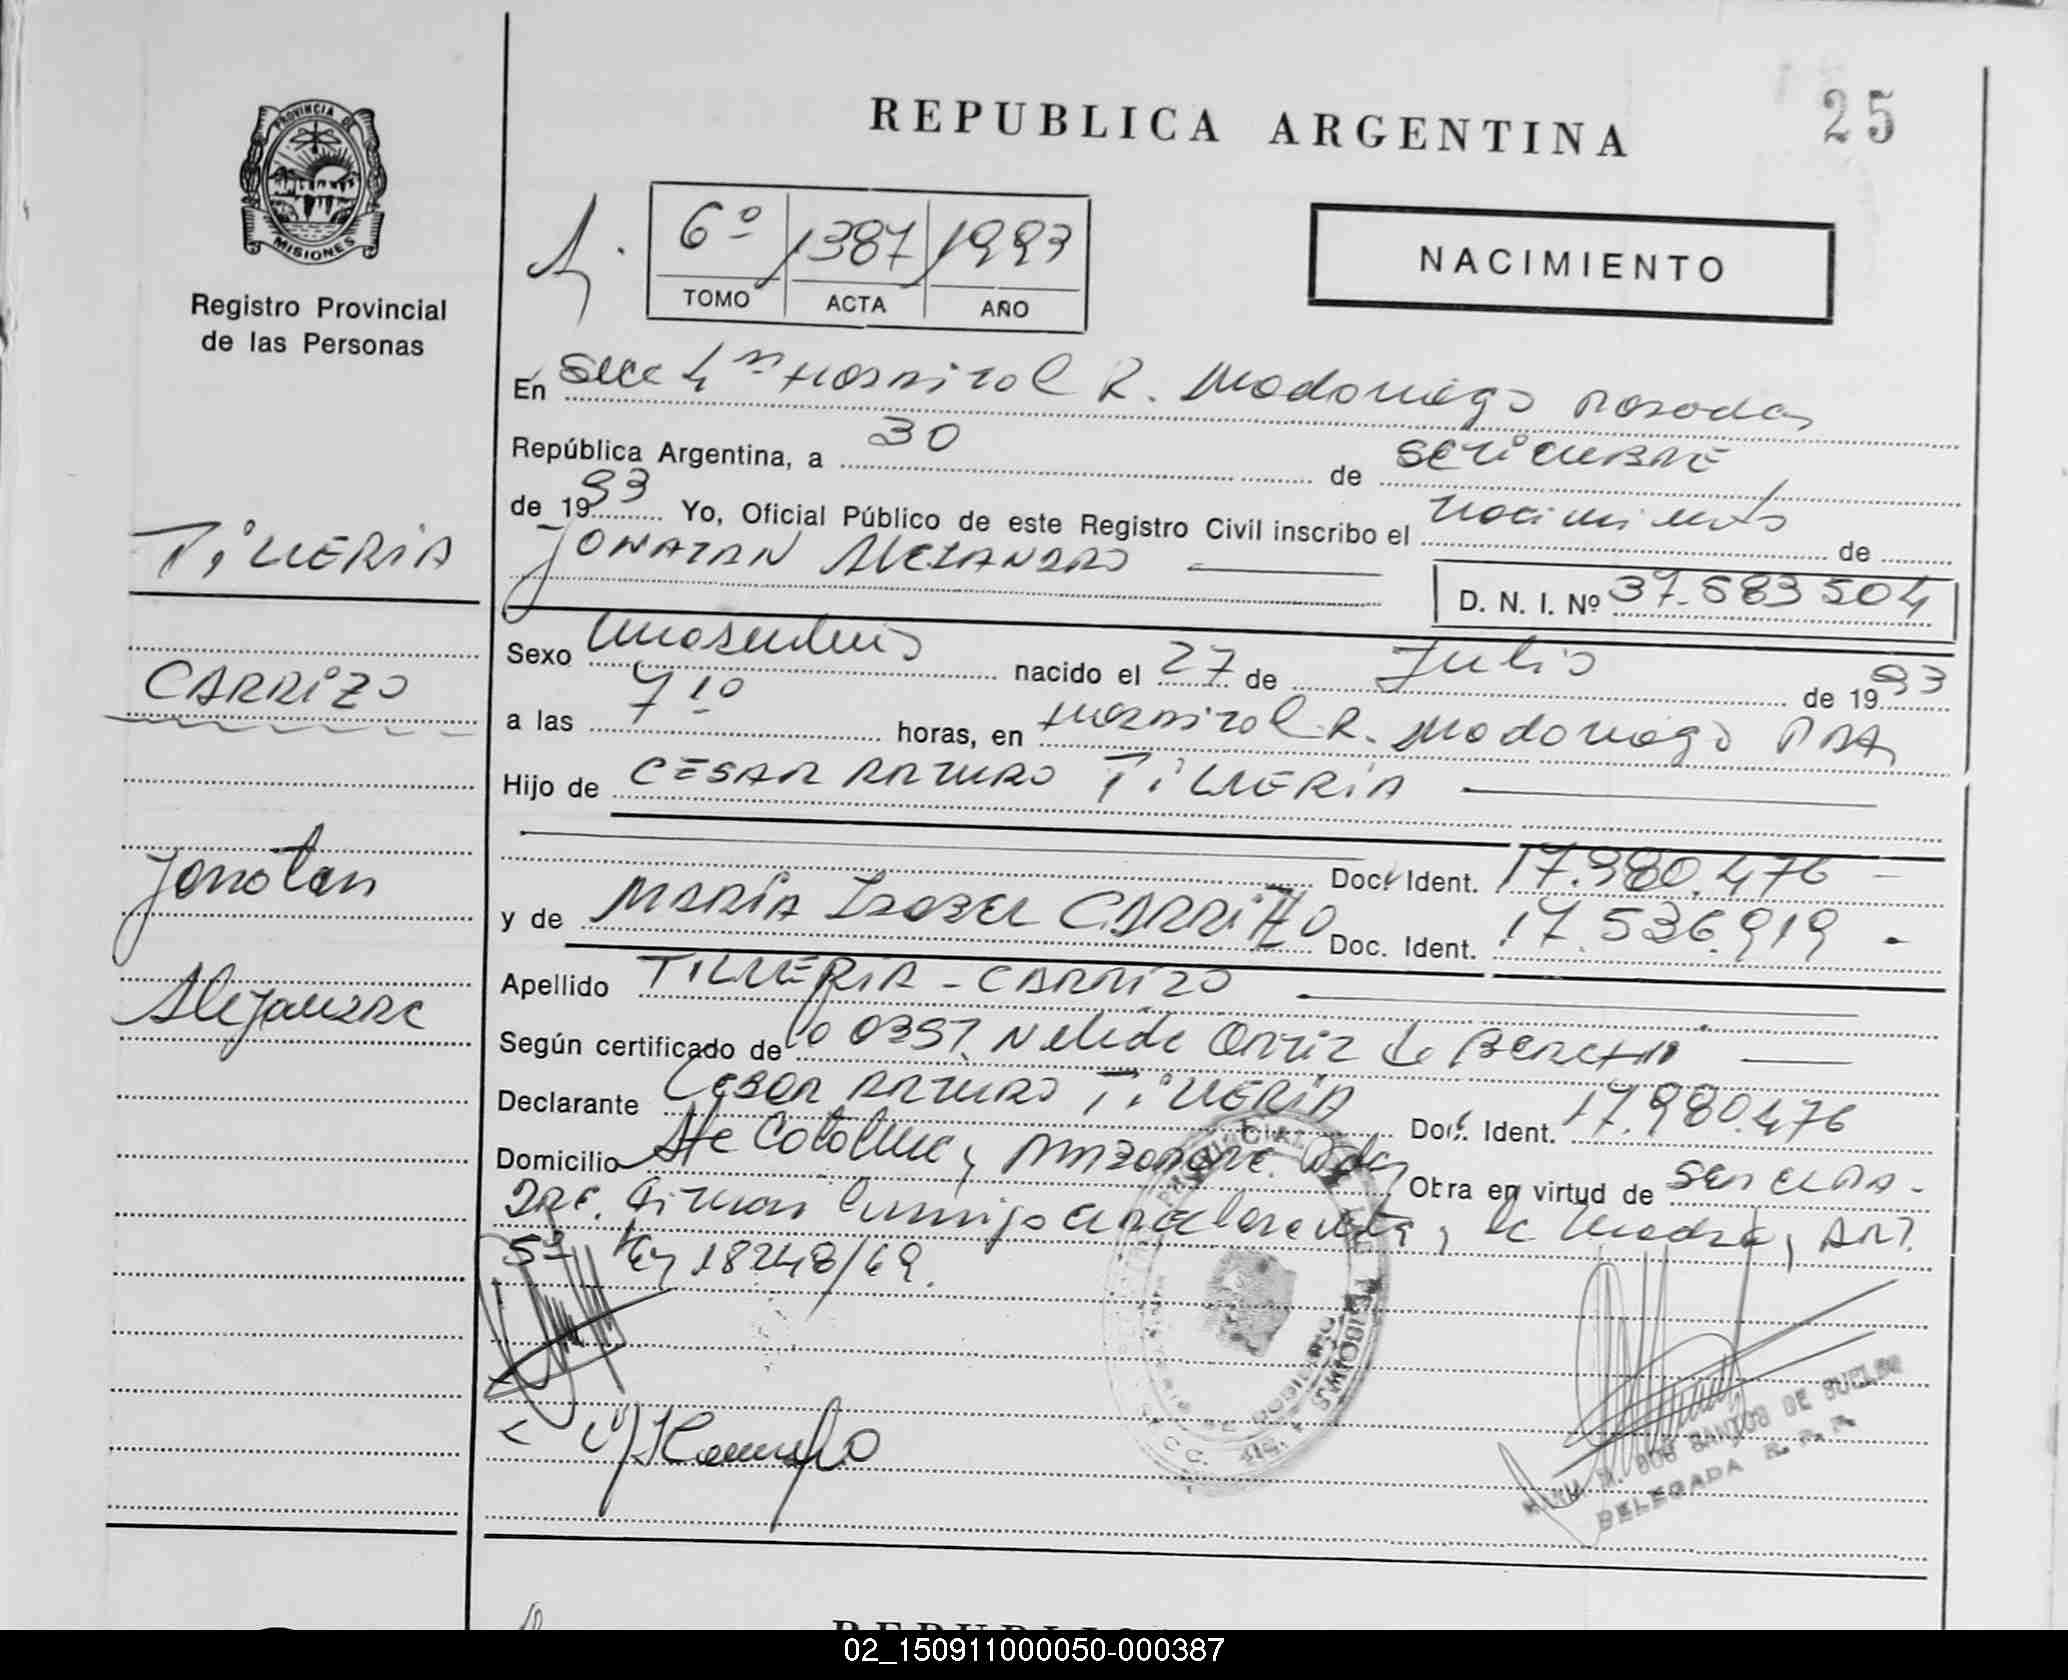 25
REPUBLICA ARGENTINA
PROVINCIA DE
MISIONES
Registro Provincial
de las Personas
6º 1387 1993
TOMO ACTA AÑO
NACIMIENTO
En Secc 4ta Hospital R. Madariaga Posadas
República Argentina, a 30 de SETIEMBRE
de 1993 Yo, Oficial Público de este Registro Civil inscribo el nacimiento de
JONATAN ALEJANDRO
D. N. I. Nº 37.583504
Sexo masculino nacido el 27 de Julio de 1993
a las 7 10 horas, en Hospital R. Madariaga Pdas
Hijo de CESAR ARTURO TILLERIA
Doc. Ident. 17.980.476
y de MARIA ISABEL CARRIZO Doc. Ident. 17.536.919
Apellido TILLERIA - CARRIZO
Según certificado de 0357. Nelida Ortiz de
Declarante CESAR ARTURO TILLERIA Doc. Ident. 17.980.476
Domicilio Sta Catalina y Pdas Obra en virtud de ser el PA-
DRE. Firman conmigo el declarante, la madre, ART.
5º Ley 18248/69.
DOS SANTOS DE SUELDO
DELEGADA R. P. P.
TILLERIA
CARRIZO
Jonatan
Alejandro
REPUBLICA
02_150911000050-000387